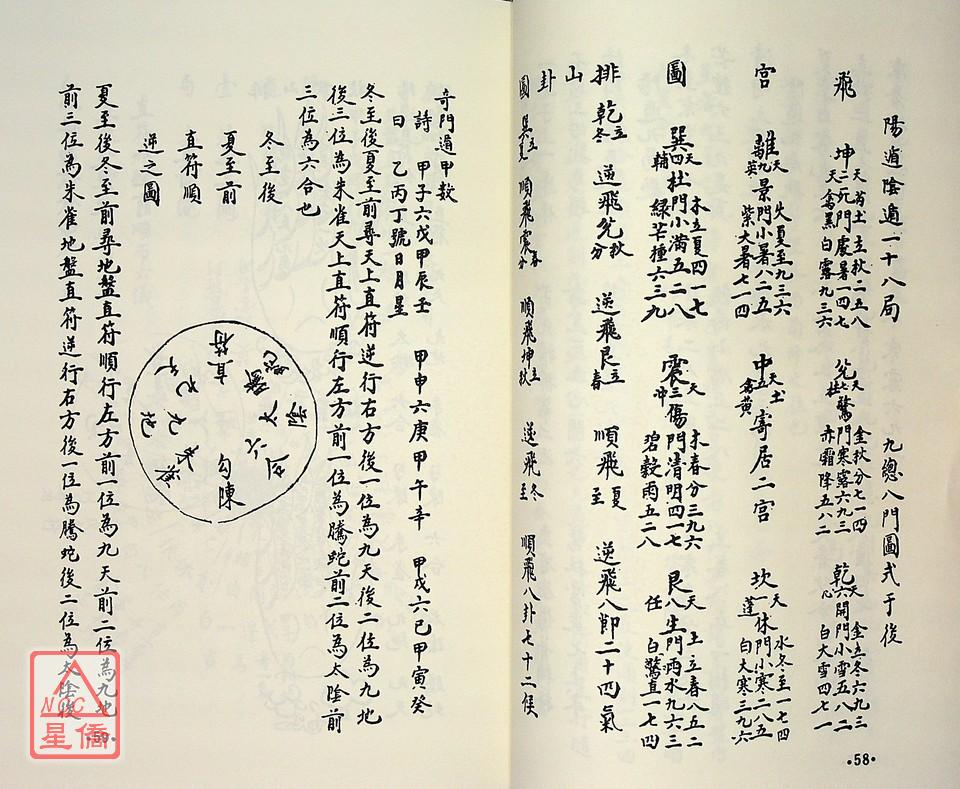 陽遁陰遁一十八局　九總八門圖式于後
飛宮圖
坤二死門　天芮土　立秋二五八
天禽黑　處暑一四七
白露九三六
兌七驚門　天柱　金秋分七一四
寒露六九三
赤霜降五八二
乾六開門　天心　金立冬六九三
小雪五八二
白大雪四七一
離九景門　天英　火夏至九三六
小暑八二五
紫大暑七一四
中五寄居二宮　天土
禽黃
坎一休門　天蓬　水冬至一七四
小寒二八五
白大寒三九六
巽四杜門　天輔　木立夏四一七
小滿五二八
綠芒種六三九
震三傷門　天冲　木春分三九六
清明四一七
碧穀雨五二八
艮八生門　天任　土立春八五二
雨水九六三
白驚直一七四
排山卦圖
乾立冬　逆飛兌秋分　逆飛艮立春　順飛夏至　逆飛八節二十四氣
巽立夏　順飛震春分　順飛坤立秋　逆飛冬至　順飛八卦七十二侯
•58•
奇門遁甲數
詩曰
甲子六戊甲辰壬　甲申六庚甲午辛　甲戌六己甲寅癸
乙丙丁號日月星
冬至後夏至前尋天上直符逆行右方後一位為九天後二位為九地
後三位為朱雀天上直符順行左方前一位為騰蛇前二位為太陰前
三位為六合也
冬至後
夏至前
直符順
逆之圖
直符
勾陳
九地
夏至後冬至前尋地盤直符順行左方前一位為九天前二位為九地
前三位為朱雀地盤直符逆行右方後一位為騰蛇後二位為太陰後
•59•
NCC
星僑